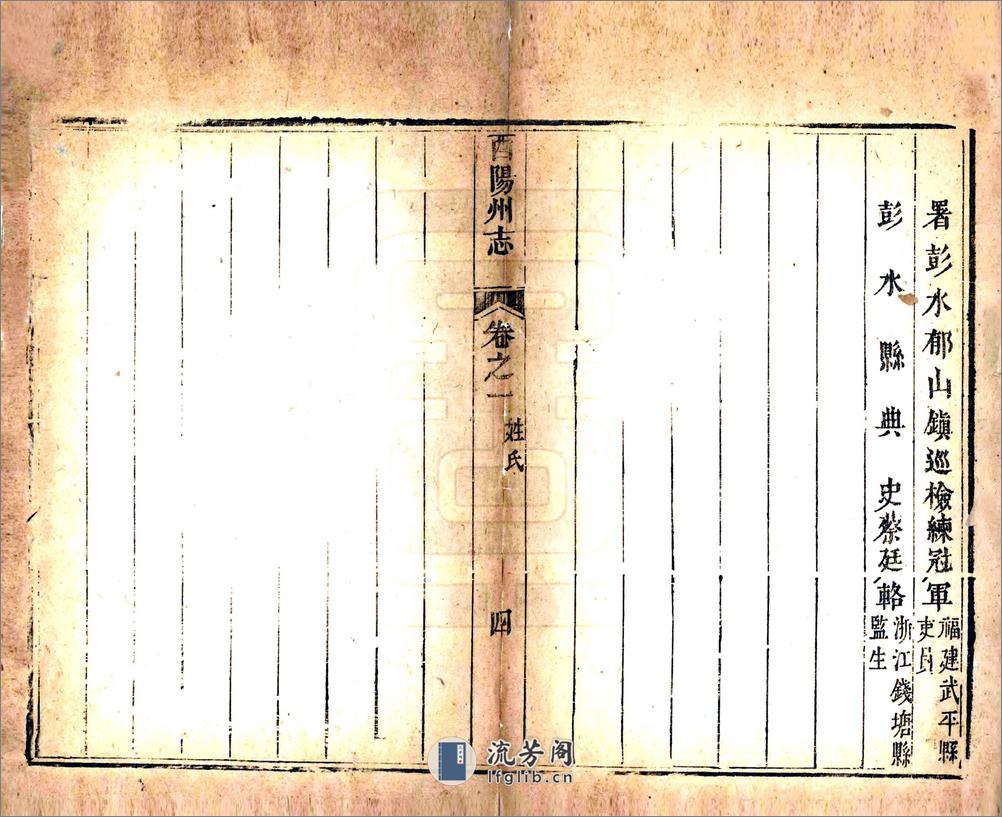 署彭水郁山鎮巡檢練冠軍福建武平縣
吏員
彭水縣典史蔡廷輅浙江錢塘縣
監生
酉陽州志
卷之一
姓氏
四
流芳阁
lfglib.cn